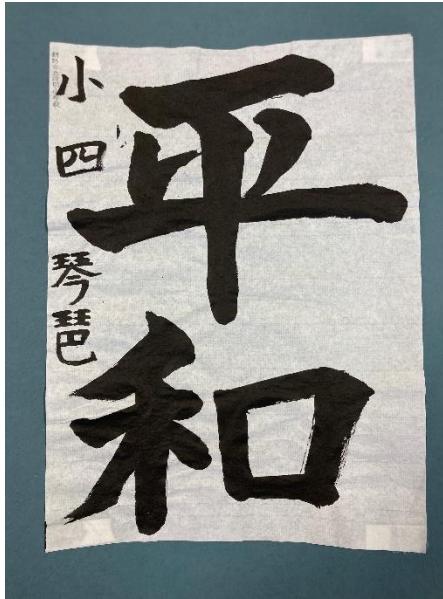 平和
小四 琴琶